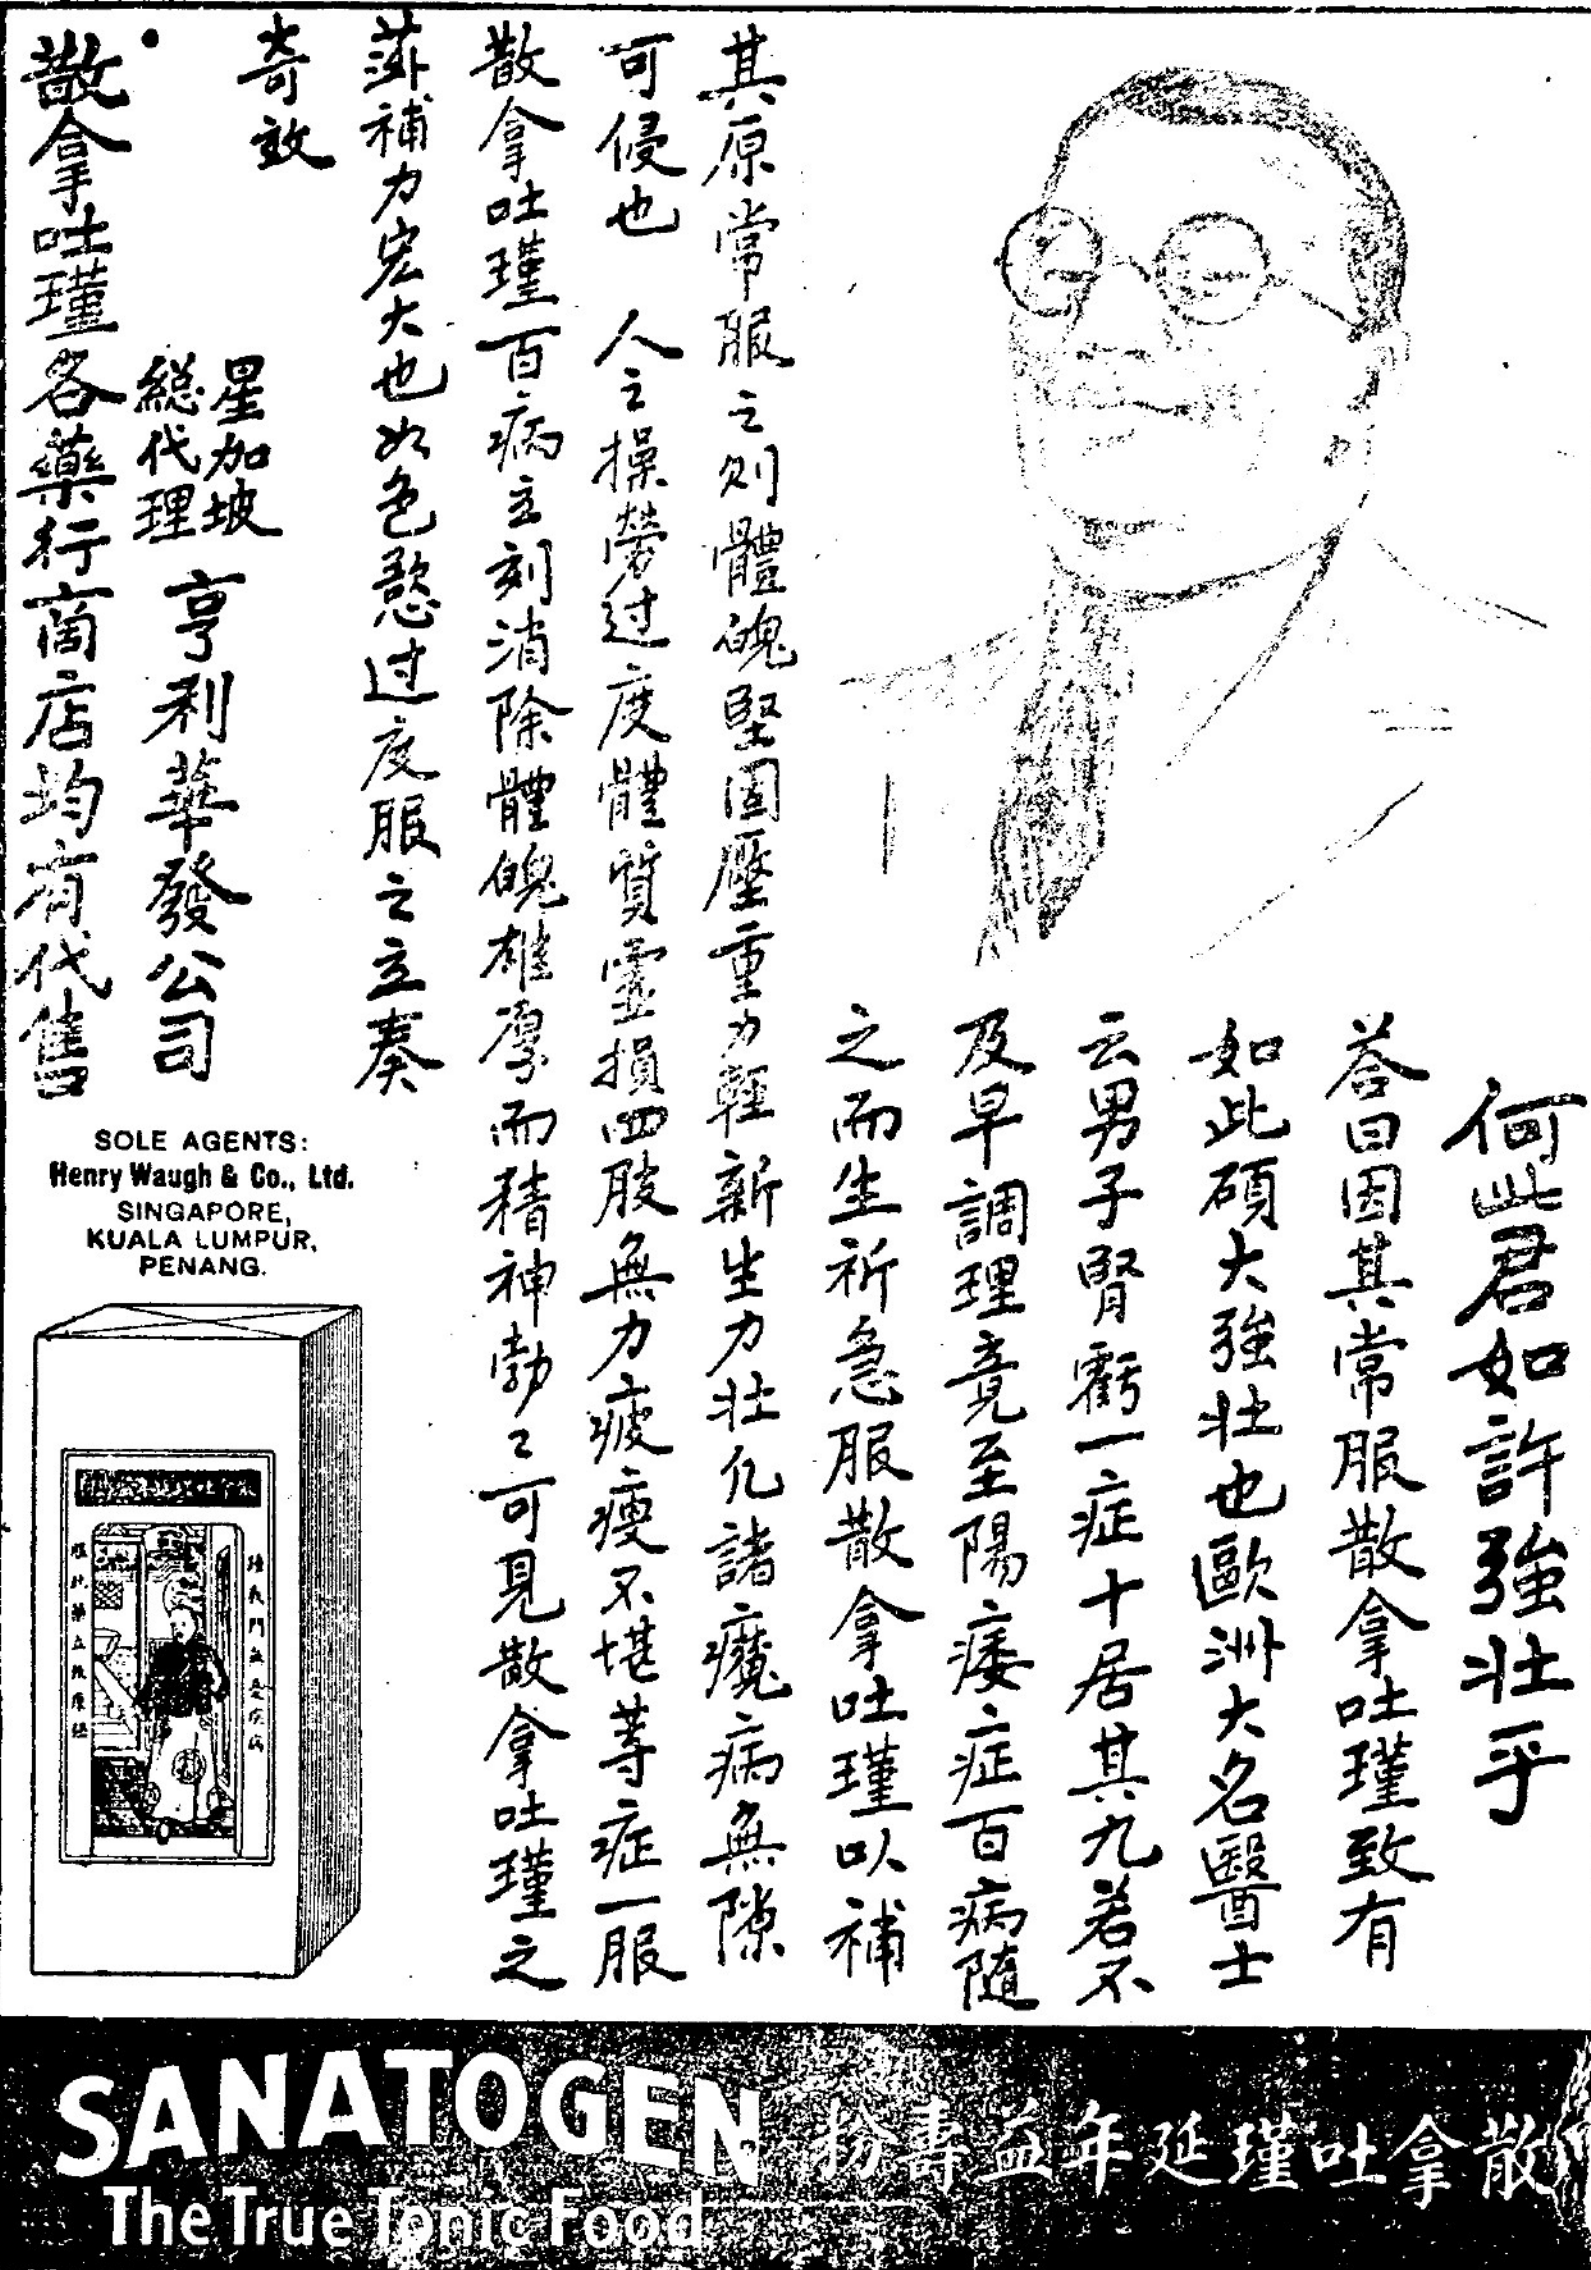 何此君如許強壯乎
荅曰因其常服散拿吐瑾致有
如此碩大強壯也歐洲大名醫士
云男子腎虧一症十居其九若不
及早調理竟至陽痿症百病隨
之而生祈急服散拿吐瑾以補
其原常服之则體魄堅固壓重力輕新生力壯凡諸癦病無隙
可侵也 人之操勞过度體質靈損四肢無力疲瘦不堪等症一服
散拿吐瑾百病立刻消除體魄雄厚而精神勃々可見散拿吐瑾之
補力宏大也如色慾过度服之立奏
奇效
星加坡
総代理
亨利華發公司
散拿吐瑾各藥行商店均有代售
SOLE AGENTS:
Henry Waugh & Co., Ltd.
SINGAPORE,
KUALA LUMPUR,
PENANG.
服此藥立
我門無
疾病
SANATOGEN
The True Tonic Food
散拿吐瑾延年益壽粉